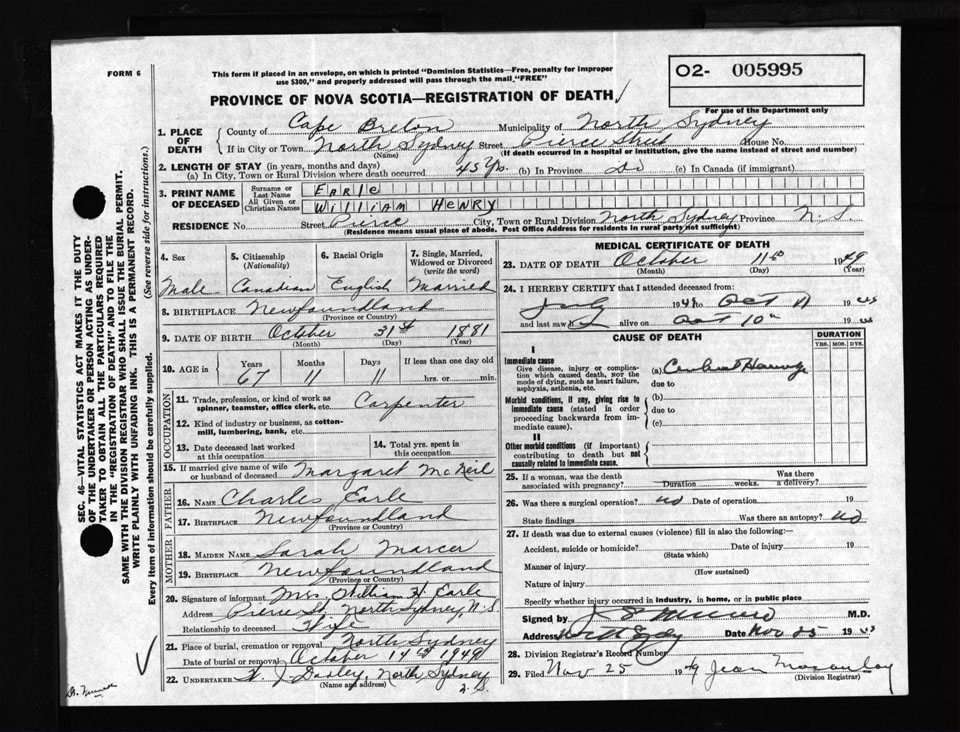 FORM 6
This form if placed in an envelope, on which is printed "Dominion Statistics—Free, penalty for improper
use $300," and properly addressed will pass through the mail, "FREE"
O2- 005995
For use of the Department only
PROVINCE OF NOVA SCOTIA—REGISTRATION OF DEATH
1. PLACE OF DEATH
County of Cape Breton Municipality of North Sydney
If in City or Town North Sydney Street Pierce Street House No.
(Name) (If death occurred in a hospital or institution, give the name instead of street and number)
2. LENGTH OF STAY (in years, months and days)
(a) In City, Town or Rural Division where death occurred 45 yrs. (b) In Province Do (c) In Canada (if immigrant)
3. PRINT NAME OF DECEASED
Surname or Last Name EARLE
All Given or Christian Names WILLIAM HENRY
RESIDENCE No. Street Pierce City, Town or Rural Division North Sydney Province N.S.
(Residence means usual place of abode. Post Office Address for residents in rural parts not sufficient)
4. Sex 5. Citizenship (Nationality) 6. Racial Origin 7. Single, Married, Widowed or Divorced (write the word)
Male Canadian English Married
8. BIRTHPLACE Newfoundland
(Province or Country)
9. DATE OF BIRTH October 31st 1881
(Month) (Day) (Year)
10. AGE in Years Months Days If less than one day old
67 11 11 hrs. or min.
OCCUPATION
11. Trade, profession, or kind of work as spinner, teamster, office clerk, etc. Carpenter
12. Kind of industry or business, as cotton-mill, lumbering, bank, etc.
13. Date deceased last worked at this occupation
14. Total yrs. spent in this occupation
15. If married give name of wife or husband of deceased Margaret McNeil
FATHER
16. NAME Charles Earle
17. BIRTHPLACE Newfoundland
(Province or Country)
MOTHER
18. MAIDEN NAME Sarah Marcer
19. BIRTHPLACE Newfoundland
(Province or Country)
20. Signature of informant Mrs. William H. Earle
Address Pierce St., North Sydney, N.S.
Relationship to deceased Wife
21. Place of burial, cremation or removal North Sydney
Date of burial or removal October 14th 1949
22. UNDERTAKER North Sydney
(Name and address) N.S.
MEDICAL CERTIFICATE OF DEATH
23. DATE OF DEATH October 11th 1949
(Month) (Day) (Year)
24. I HEREBY CERTIFY that I attended deceased from:
July 194 to Oct 11 19
and last saw alive on Oct 10th 19
CAUSE OF DEATH
DURATION
YRS. MOS. DYS.
I
Immediate cause
Give disease, injury or complication which caused death, NOT the mode of dying, such as heart failure, asphyxia, asthenia, etc.
(a)
due to
Morbid conditions, if any, giving rise to immediate cause (stated in order proceeding backwards from immediate cause).
(b)
due to
(c)
II
Other morbid conditions (if important) contributing to death but not causally related to immediate cause.
25. If a woman, was the death associated with pregnancy? Duration weeks. Was there a delivery?
26. Was there a surgical operation? no Date of operation 19
State findings Was there an autopsy? no
27. If death was due to external causes (violence) fill in also the following:—
Accident, suicide or homicide? Date of injury 19
(State which)
Manner of injury
(How sustained)
Nature of injury
Specify whether injury occurred in industry, in home, or in public place
Signed by M.D.
Address Date Nov 25 19
28. Division Registrar's Record Number
29. Filed Nov 25 1949 Jean Macaulay
(Division Registrar)
SEC. 46—VITAL STATISTICS ACT MAKES IT THE DUTY
OF THE UNDERTAKER OR PERSON ACTING AS UNDER-
TAKER TO OBTAIN ALL THE PARTICULARS REQUIRED
IN THE "REGISTRATION OF DEATH" AND TO FILE THE
SAME WITH THE DIVISION REGISTRAR WHO SHALL ISSUE THE BURIAL PERMIT.
WRITE PLAINLY WITH UNFADING INK. THIS IS A PERMANENT RECORD.
Every item of information should be carefully supplied. (See reverse side for instructions.)